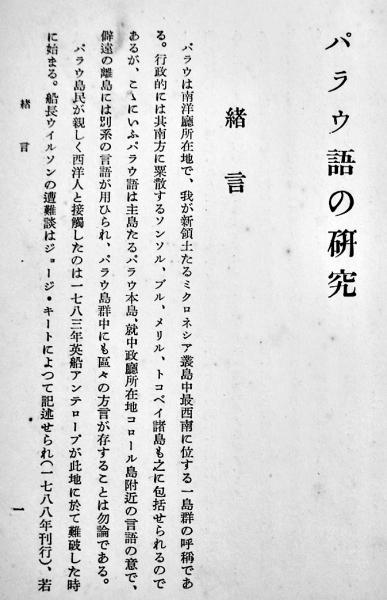 パラウ語の研究
緒言
パラウは南洋廳所在地で、我が新領土たるミクロネシア叢島中最西南に位する一島群の呼稱であ
る。行政的には其南方に粟散するソンソル、プル、メリル、トコベイ諸島も之に包括せられるので
あるが、こゝにいふパラウ語は主島たるパラウ本島、就中政廳所在地コロール島附近の言語の意で、
僻遠の離島には別系の言語が用ひられ、パラウ島群中にも區々の方言が存することは勿論である。
パラウ島民が親しく西洋人と接觸したのは一七八三年英船アンテロープが此地に於て難破した時
に始まる。船長ウイルソンの遭難談はジョージ・キートによつて記述せられ(一七八八年刊行)、若
緒言
一